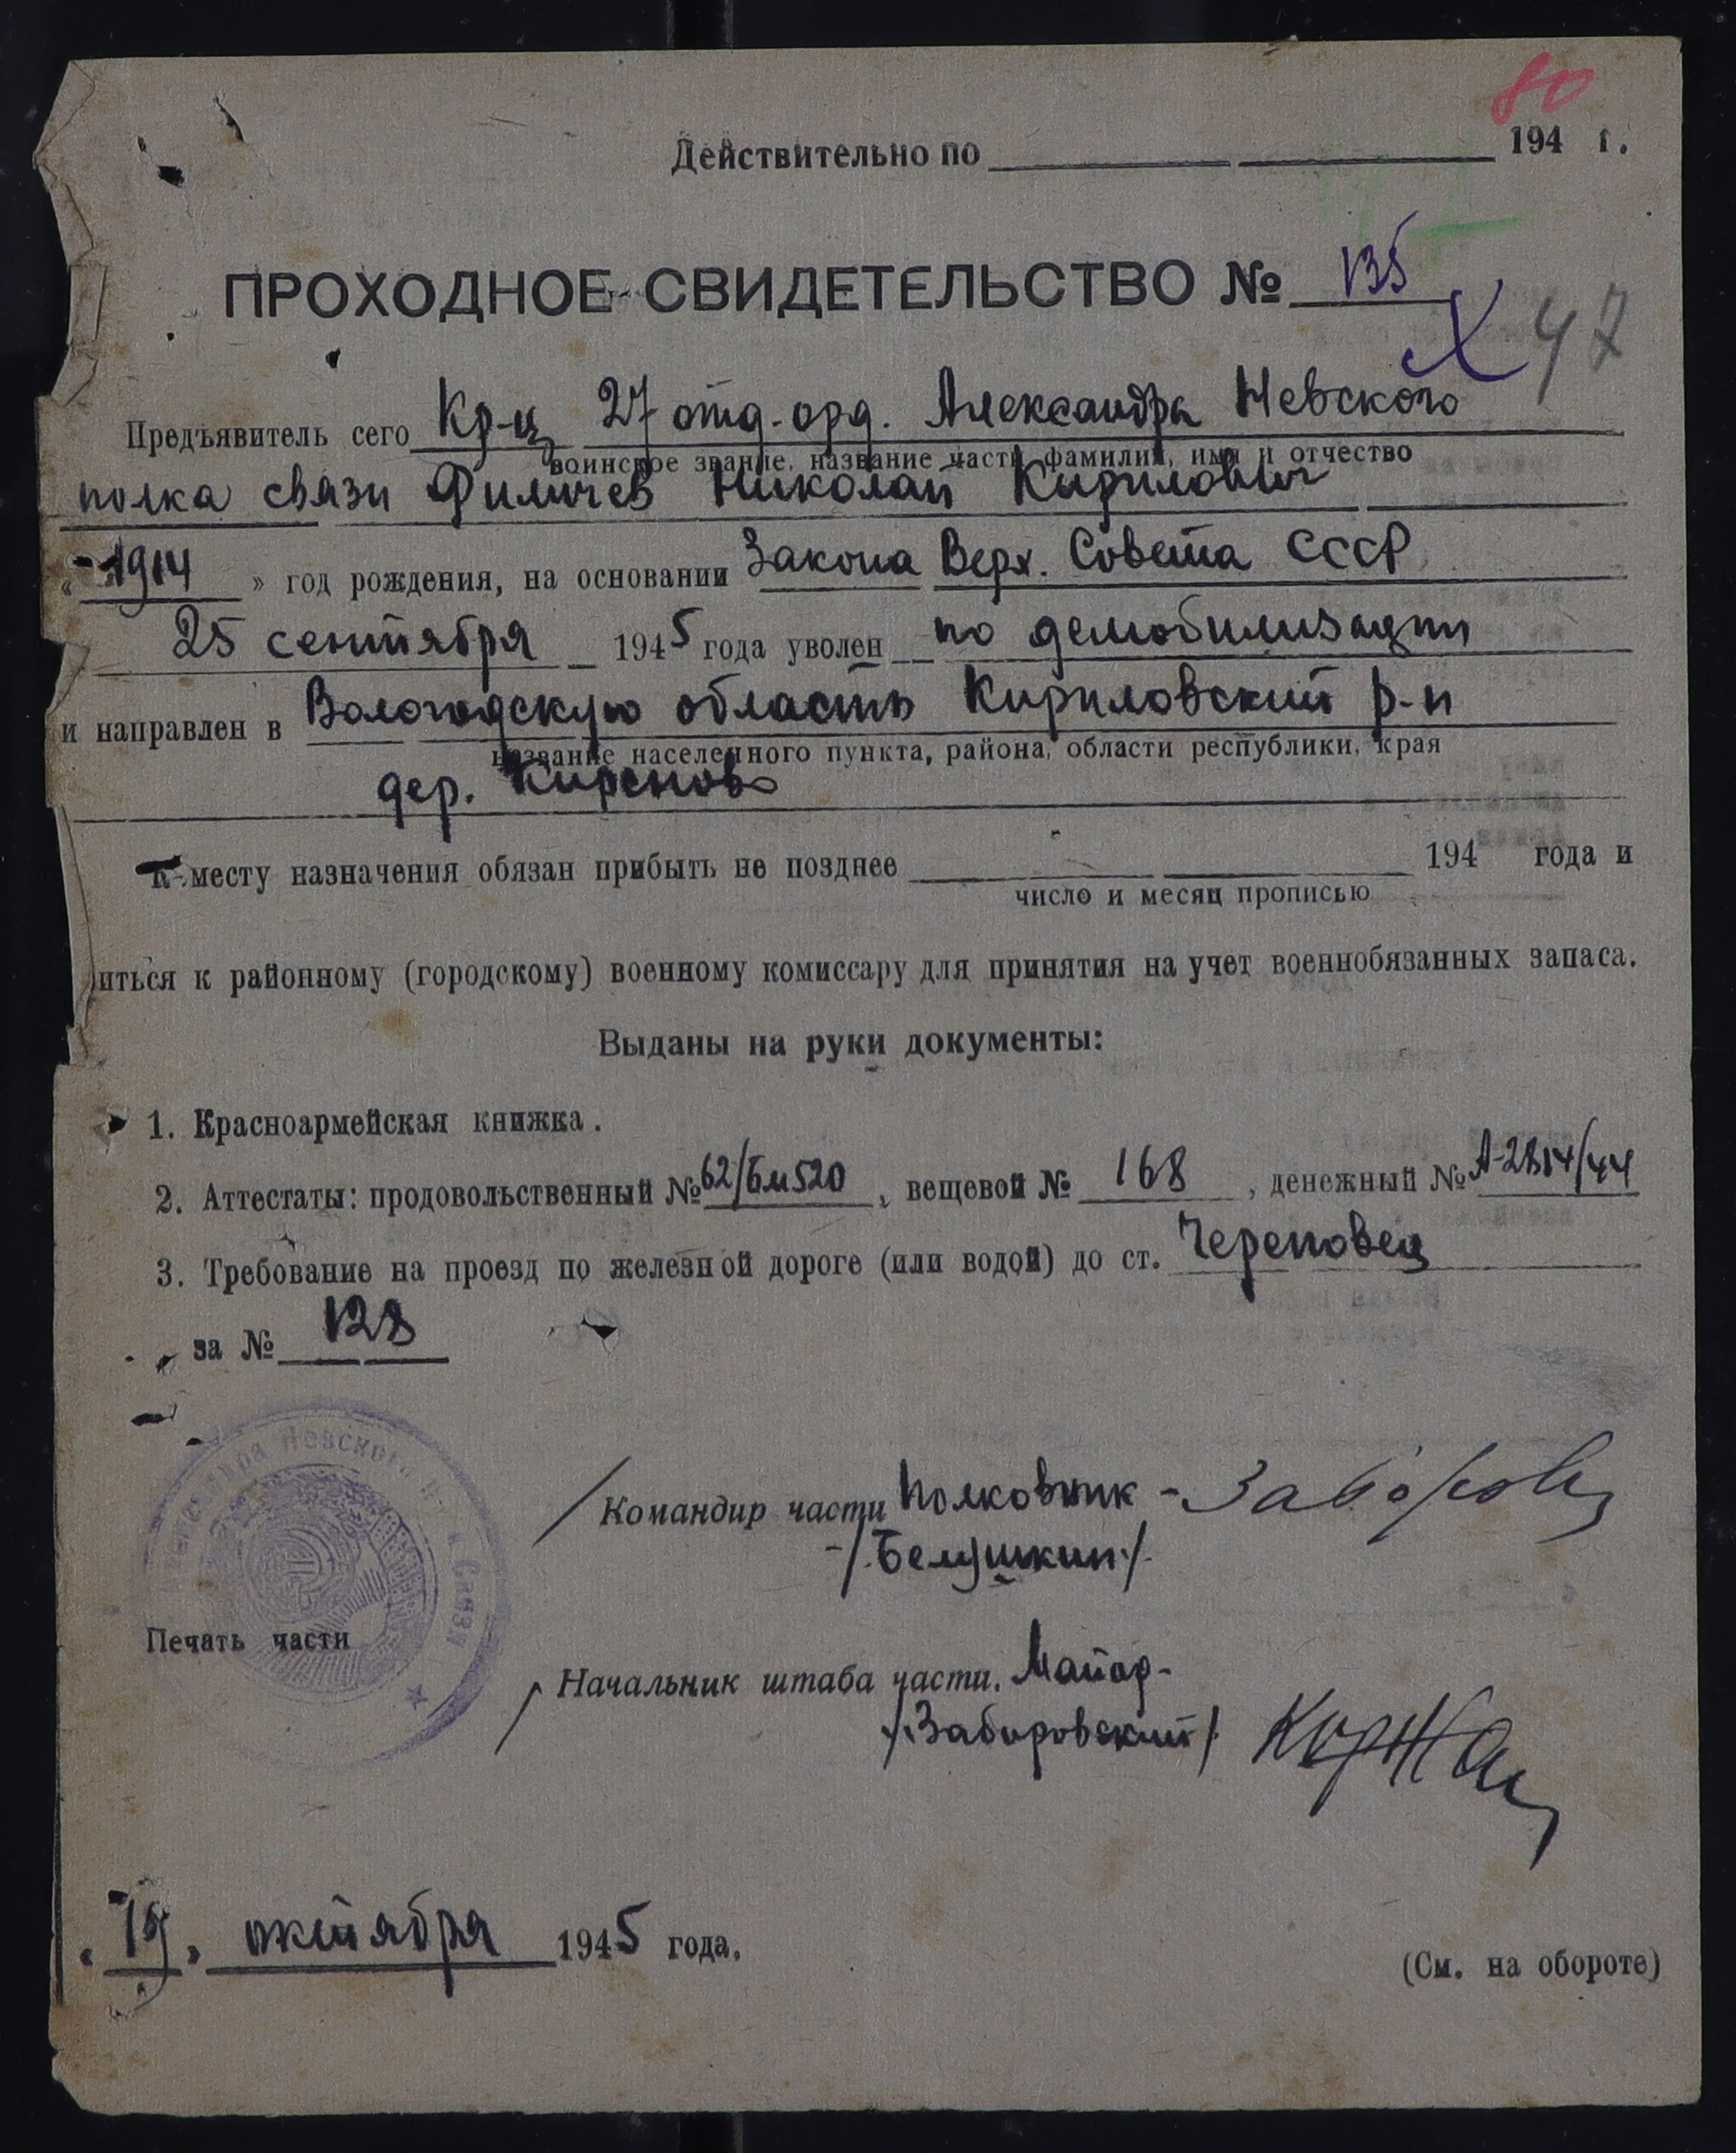 80
Действительно по 194 г.
ПРОХОДНОЕ СВИДЕТЕЛЬСТВО № 135
47
Предъявитель сего Кр-ц 27 отд. орд. Александра Невского
воинское звание, название части фамилия, имя и отчество
полка связи Филичев Николай Кирилович
« 1914 » год рождения, на основании Закона Верх. Совета СССР
25 сентября 1945 года уволен по демобилизации
и направлен в Вологодскую область Кириловский р-н
название населенного пункта, района, области республики, края
дер.
К месту назначения обязан прибыть не позднее 194 года и
число и месяц прописью
иться к районному (городскому) военному комиссару для принятия на учет военнобязанных запаса.
Выданы на руки документы:
1. Красноармейская книжка.
2. Аттестаты: продовольственный № 62/Бм520, вещевой № 168, денежный № А-2814/44
3. Требование на проезд по железной дороге (или водой) до ст. Череповец
за № 128
Невского Связи
/ Командир части Полковник -
-/.Белушкин./.
Печать части
/ Начальник штаба части. Майор-
/.Забировский/.
« 19 » октября 1945 года.
(См. на обороте)